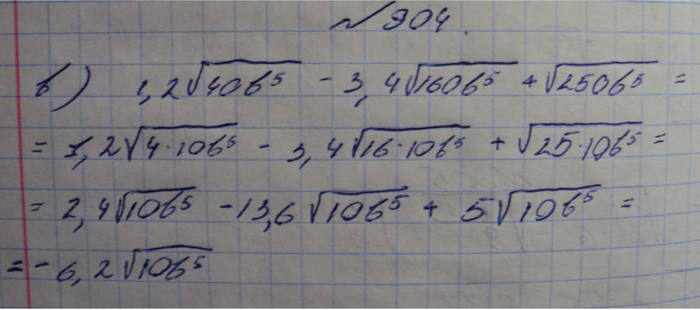 №904.
в) 1,2√40b⁵ - 3,4√160b⁵ + √250b⁵ =
= 1,2√4·10b⁵ - 3,4√16·10b⁵ + √25·10b⁵ =
= 2,4√10b⁵ - 13,6√10b⁵ + 5√10b⁵ =
= - 6,2√10b⁵